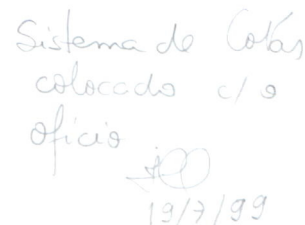 Sistema de Cotas
colocado c/ o
ofício
19/7/99